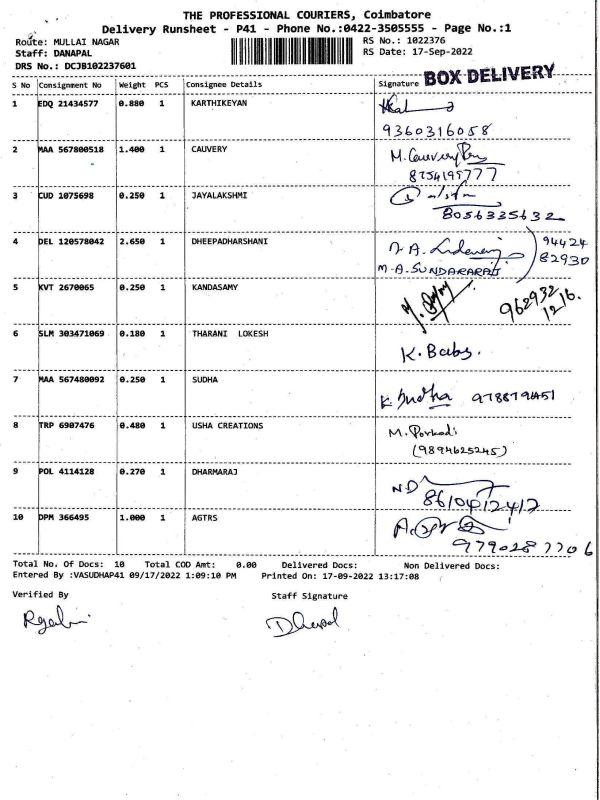 THE PROFESSIONAL COURIERS, Coimbatore
Delivery Runsheet - P41 - Phone No.:0422-3505555 - Page No.:1
Route: MULLAI NAGAR RS No.: 1022376
Staff: DANAPAL RS Date: 17-Sep-2022
DRS No.: DCJB102237601
BOX DELIVERY
S No Consignment No Weight PCS Consignee Details Signature
1 EDQ 21434577 0.880 1 KARTHIKEYAN
9360316058
2 MAA 567800518 1.400 1 CAUVERY M. Cauvery
8754195777
3 CUD 1075698 0.250 1 JAYALAKSHMI
8056335632
4 DEL 120578042 2.650 1 DHEEPADHARSHANI 94424
M.A. SUNDARARAJ 82930
5 KVT 2670065 0.250 1 KANDASAMY
962932
1216.
6 SLM 303471069 0.180 1 THARANI LOKESH
K. Babu.
7 MAA 567480092 0.250 1 SUDHA
K. Sudha
8 TRP 6907476 0.480 1 USHA CREATIONS M. Porkodi
(9894625245)
9 POL 4114128 0.270 1 DHARMARAJ
ND
8610412417
10 DPM 366495 1.000 1 AGTRS
9790287706
Total No. Of Docs: 10 Total COD Amt: 0.00 Delivered Docs: Non Delivered Docs:
Entered By :VASUDHAP41 09/17/2022 1:09:10 PM Printed On: 17-09-2022 13:17:08
Verified By Staff Signature